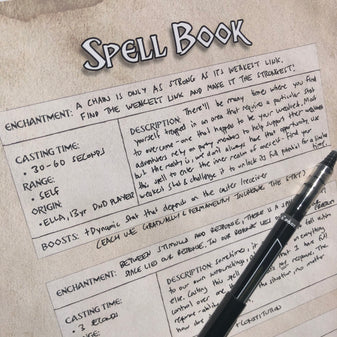 SPELL BOOK
ENCHANTMENT: A CHAIN IS ONLY AS STRONG AS ITS WEAKEST LINK.
FIND THE WEAKEST LINK AND MAKE IT THE STRONGEST.
CASTING TIME:
• 30-60 SECONDS
RANGE:
• SELF
ORIGIN:
• ELLA, 13yr DND PLAYER
DESCRIPTION: There'll be many times where you find
yourself trapped in an area that requires a particular stat
to overcome - one that happens to be your weakest. Most
adventurers rely on party members to help support their
but the reality is, we don't always have that opportunity. Use
this spell to enter the inner realm of oneself. Find your
weakest stat & challenge it to unlock its full potential for a limited
time.
BOOSTS: +Dynamic Stat that depends on the caster/receiver
(EACH USE GRADUALLY & PERMANENTLY INCREASE THE STAT)
ENCHANTMENT: BETWEEN STIMULUS AND RESPONSE, THERE IS A
SPACE LIES OUR RESPONSE. IN OUR RESPONSE LIES OUR
CASTING TIME:
• 3 SECONDS
RANGE:
DESCRIPTION: Sometimes, it
to our own surroundings,
else. Casting this spell
control over one
the situation, no matter
how
+CONSTITUTION